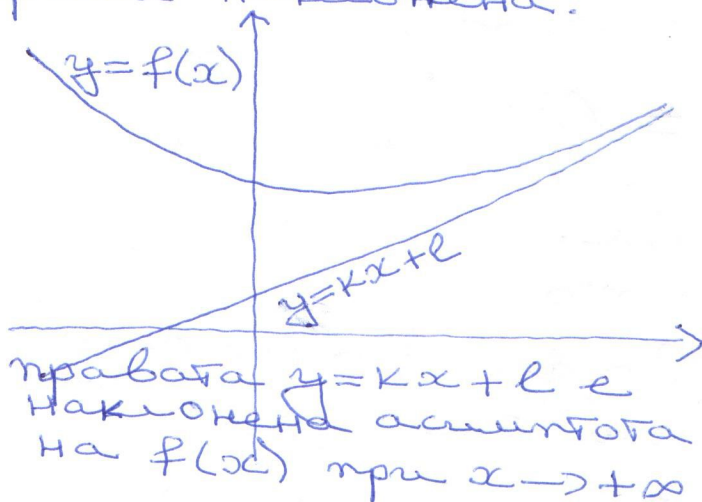 наклонена.
y=f(x)
y=kx+l
правата y=kx+l е
наклонена асимптота
на f(x) при x->+∞